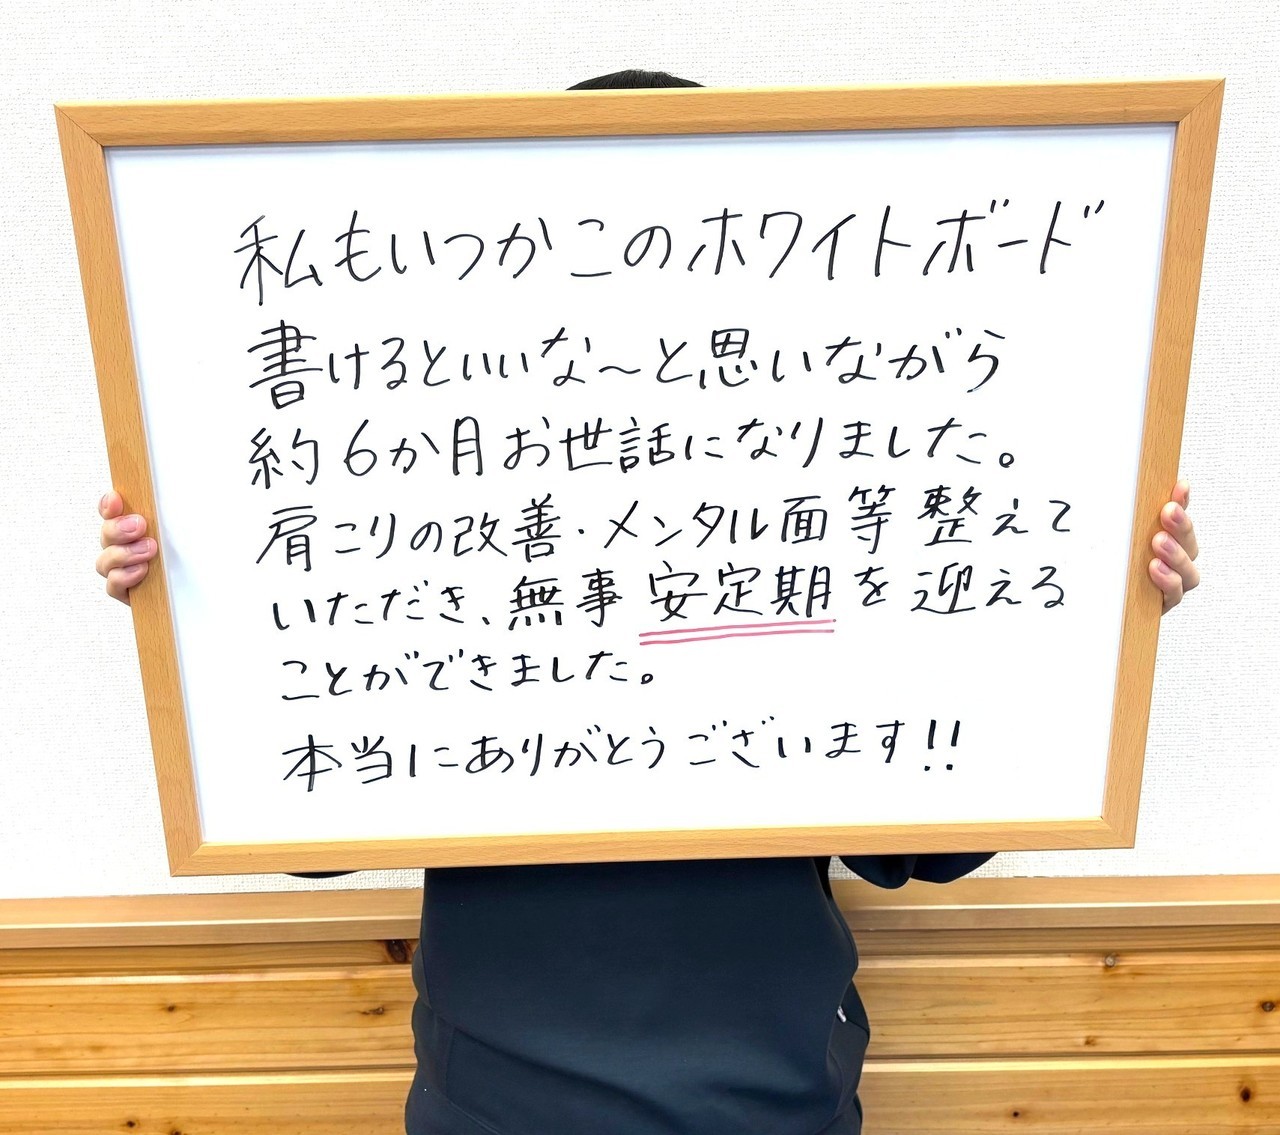 私もいつかこのホワイトボード
書けるといいな〜と思いながら
約6か月お世話になりました。
肩こりの改善・メンタル面等整えて
いただき、無事安定期を迎える
ことができました。
本当にありがとうございます!!